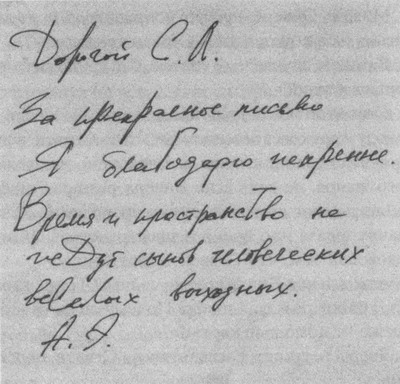 Дорогой С.
За прекрасное письмо
Я благодарю искренне.
Время и пространство не
сынов человеческих
веселых выходных.
А. Э.